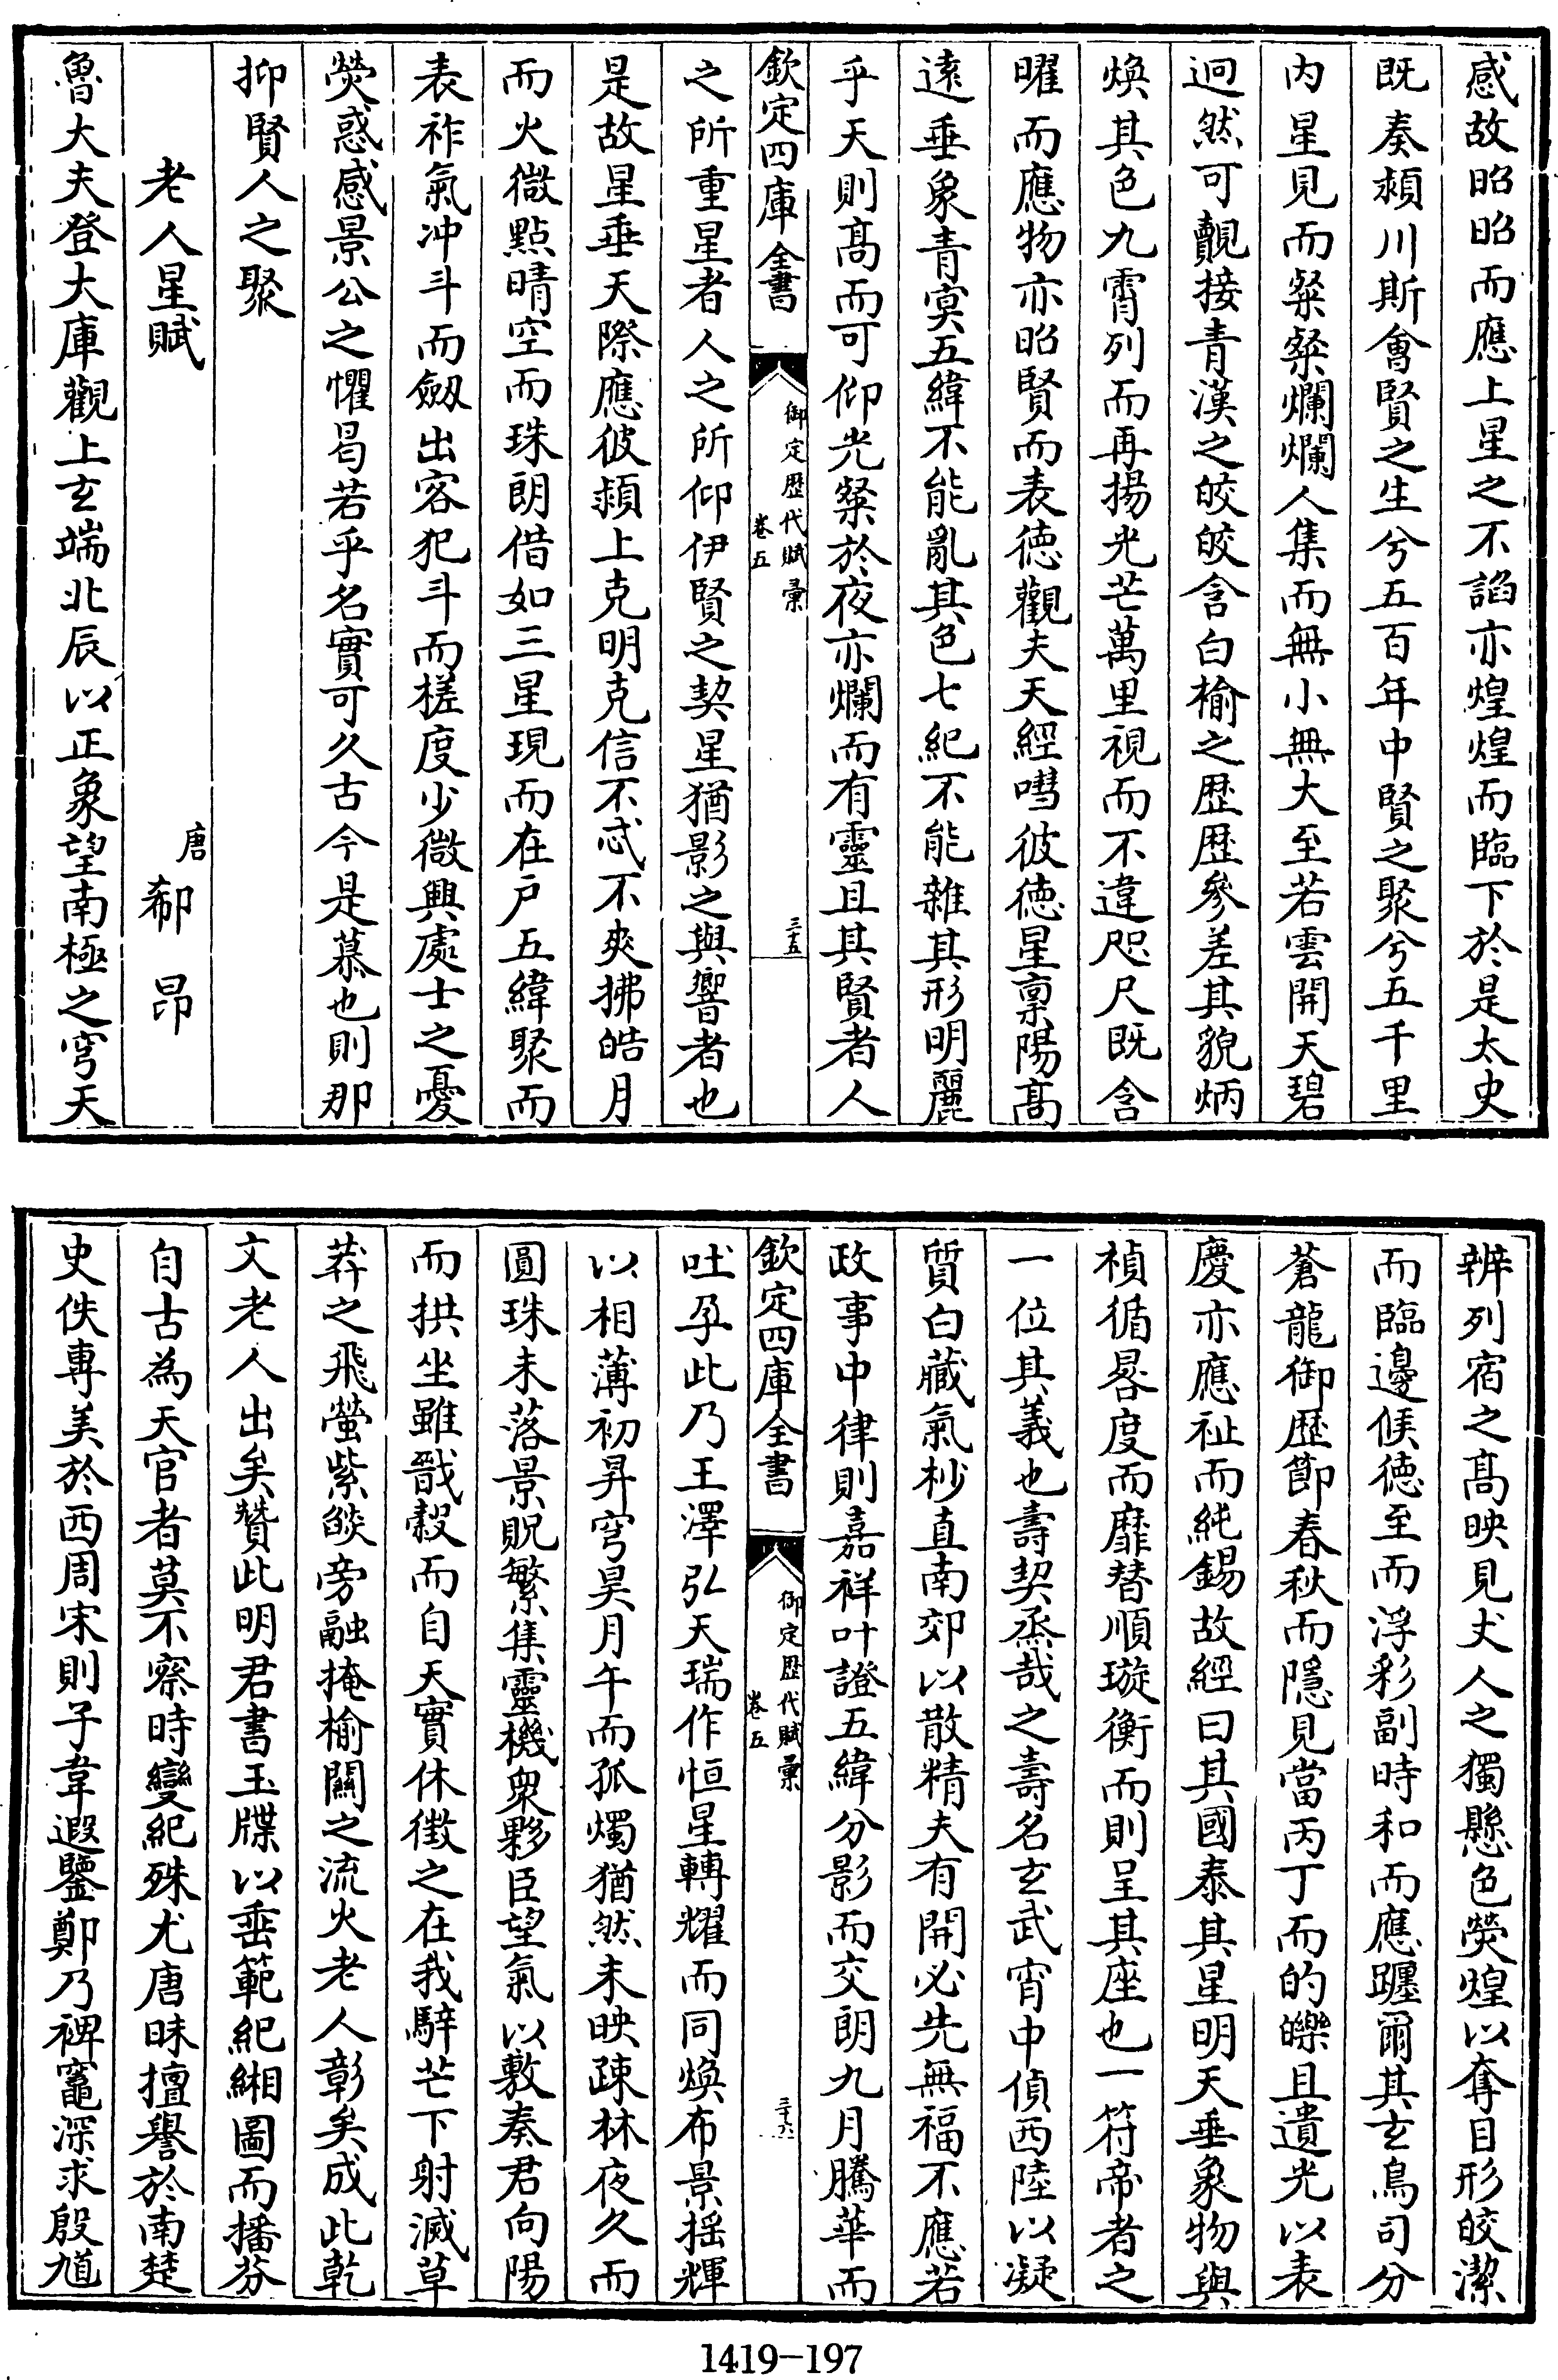 感故昭昭而應上星之不諂亦煌煌而臨下於是太史
既奏潁川斯會賢之生兮五百年中賢之聚兮五千里
内星見而粲粲爛爛人集而無小無大至若雲開天碧
迥然可覿接青漢之皎皎含白榆之歴歴參差其貌炳
煥其色九霄列而再揚光芒萬里視而不違咫尺既含
曜而應物亦昭賢而表徳觀夫天經嘒彼徳星禀陽髙
逺垂象青㝠五緯不能亂其色七紀不能雜其形明麗
乎天則髙而可仰光粲於夜亦爛而有靈且其賢者人
欽定四庫全書
御定歴代賦彙
卷五
三十五
之所重星者人之所仰伊賢之契星猶影之與響者也
是故星垂天際應彼潁上克明克信不忒不爽拂皓月
而火微點晴空而珠朗借如三星現而在戸五緯聚而
表祚氣冲斗而劔出客犯斗而槎度少微興處士之憂
熒惑感景公之懼曷若乎名實可久古今是慕也則那
抑賢人之聚
老人星賦
唐
郗昂
魯大夫登大庫觀上玄端北辰以正象望南極之穹天
辨列宿之髙映見丈人之獨懸色熒煌以奪目形皎潔
而臨邊候徳至而浮彩副時和而應躔爾其玄鳥司分
蒼龍御歴節春秋而隱見當丙丁而的皪且遺光以表
慶亦應祉而純錫故經曰其國泰其星明天垂象物與
楨循晷度而靡替順璇衡而則呈其座也一符帝者之
一位其義也壽契烝哉之壽名玄武宵中偵西陸以凝
質白藏氣杪直南郊以散精夫有開必先無福不應若
政事中律則嘉祥叶證五緯分影而交朗九月騰華而
欽定四庫全書
御定歴代賦彙
卷五
三十六
吐孕此乃王澤弘天瑞作恒星轉耀而同煥布景揺輝
以相薄初昇穹昊月午而孤燭猶然未映疎林夜久而
圓珠未落景貺繁集靈機衆夥臣望氣以敷奏君向陽
而拱坐雖戩穀而自天實休徴之在我騂芒下射滅草
莽之飛螢紫燄旁融掩榆關之流火老人彰矣成此乾
文老人出矣贊此明君書玉牒以垂範紀緗圖而播芬
自古為天官者莫不察時變紀殊尤唐昧擅譽於南楚
史佚専美於西周宋則子韋遐鑒鄭乃裨竈深求殷馗
1419-197